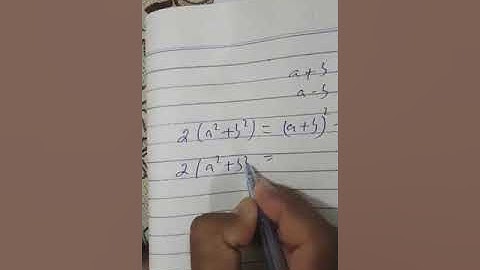 a + b
a - b
2 (a² + b²) = (a + b)² -
2 (a² + b² =